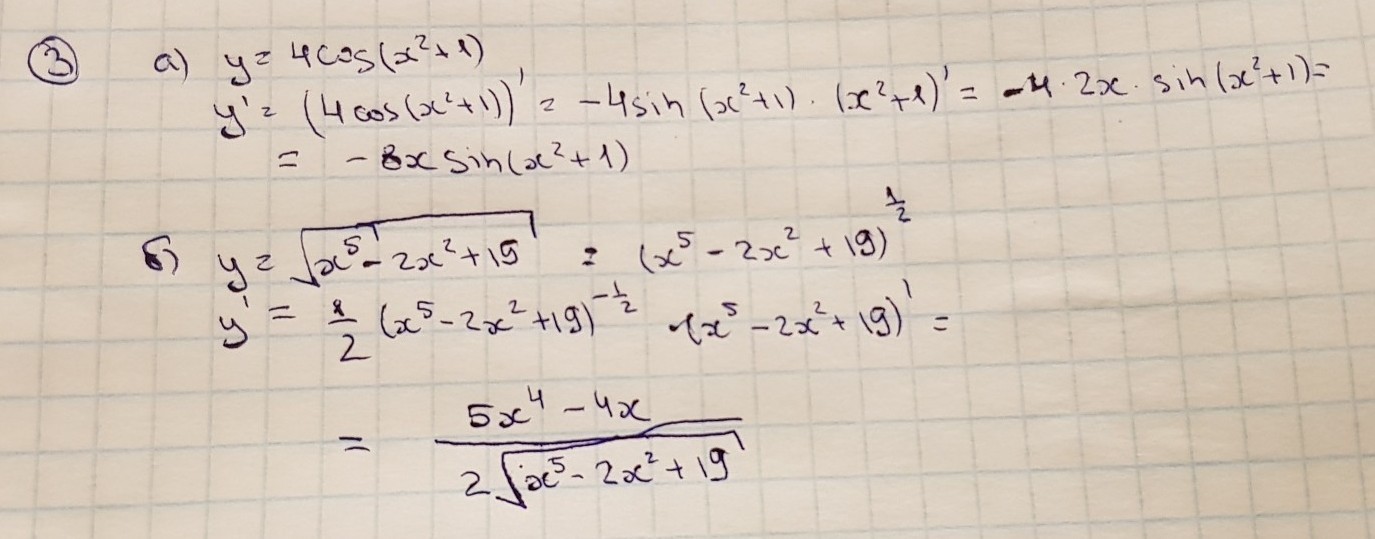 ③ а) y = 4cos(x²+1)
y' = (4cos(x²+1))' = -4sin(x²+1) · (x²+1)' = -4 · 2x · sin(x²+1) =
= -8x sin(x²+1)
б) y = √(x⁵ - 2x² + 19) = (x⁵ - 2x² + 19)^(1/2)
y' = 1/2 (x⁵ - 2x² + 19)^(-1/2) · (x⁵ - 2x² + 19)' =
= (5x⁴ - 4x) / (2√(x⁵ - 2x² + 19))